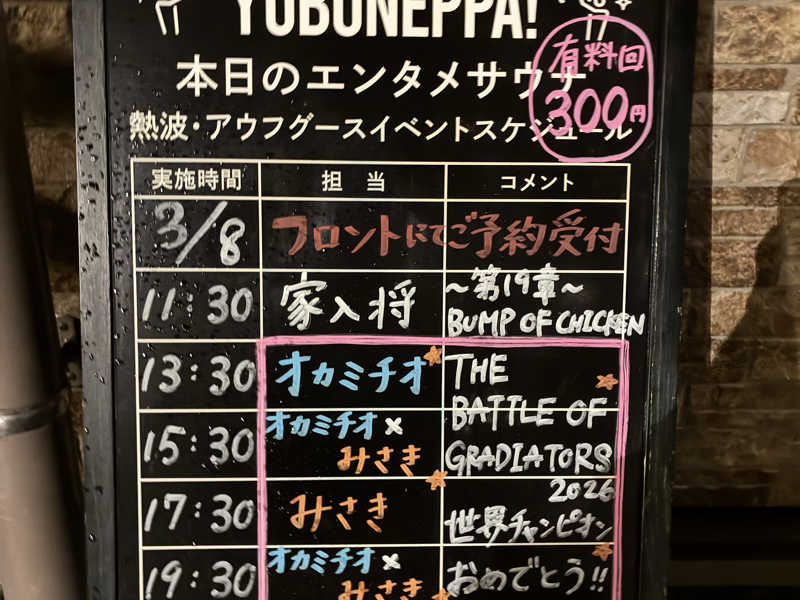 YOBUNEPPA!
本日のエンタメサウナ
有料回
300円
熱波・アウフグースイベントスケジュール
実施時間 担当 コメント
3/8 フロントにてご予約受付
11:30 家入将 〜第19章〜
BUMP OF CHICKEN
13:30 オカミチオ THE
BATTLE OF
15:30 オカミチオ×
みさき GRADIATORS
2026
17:30 みさき 世界チャンピオン
19:30 オカミチオ×
みさき おめでとう!!